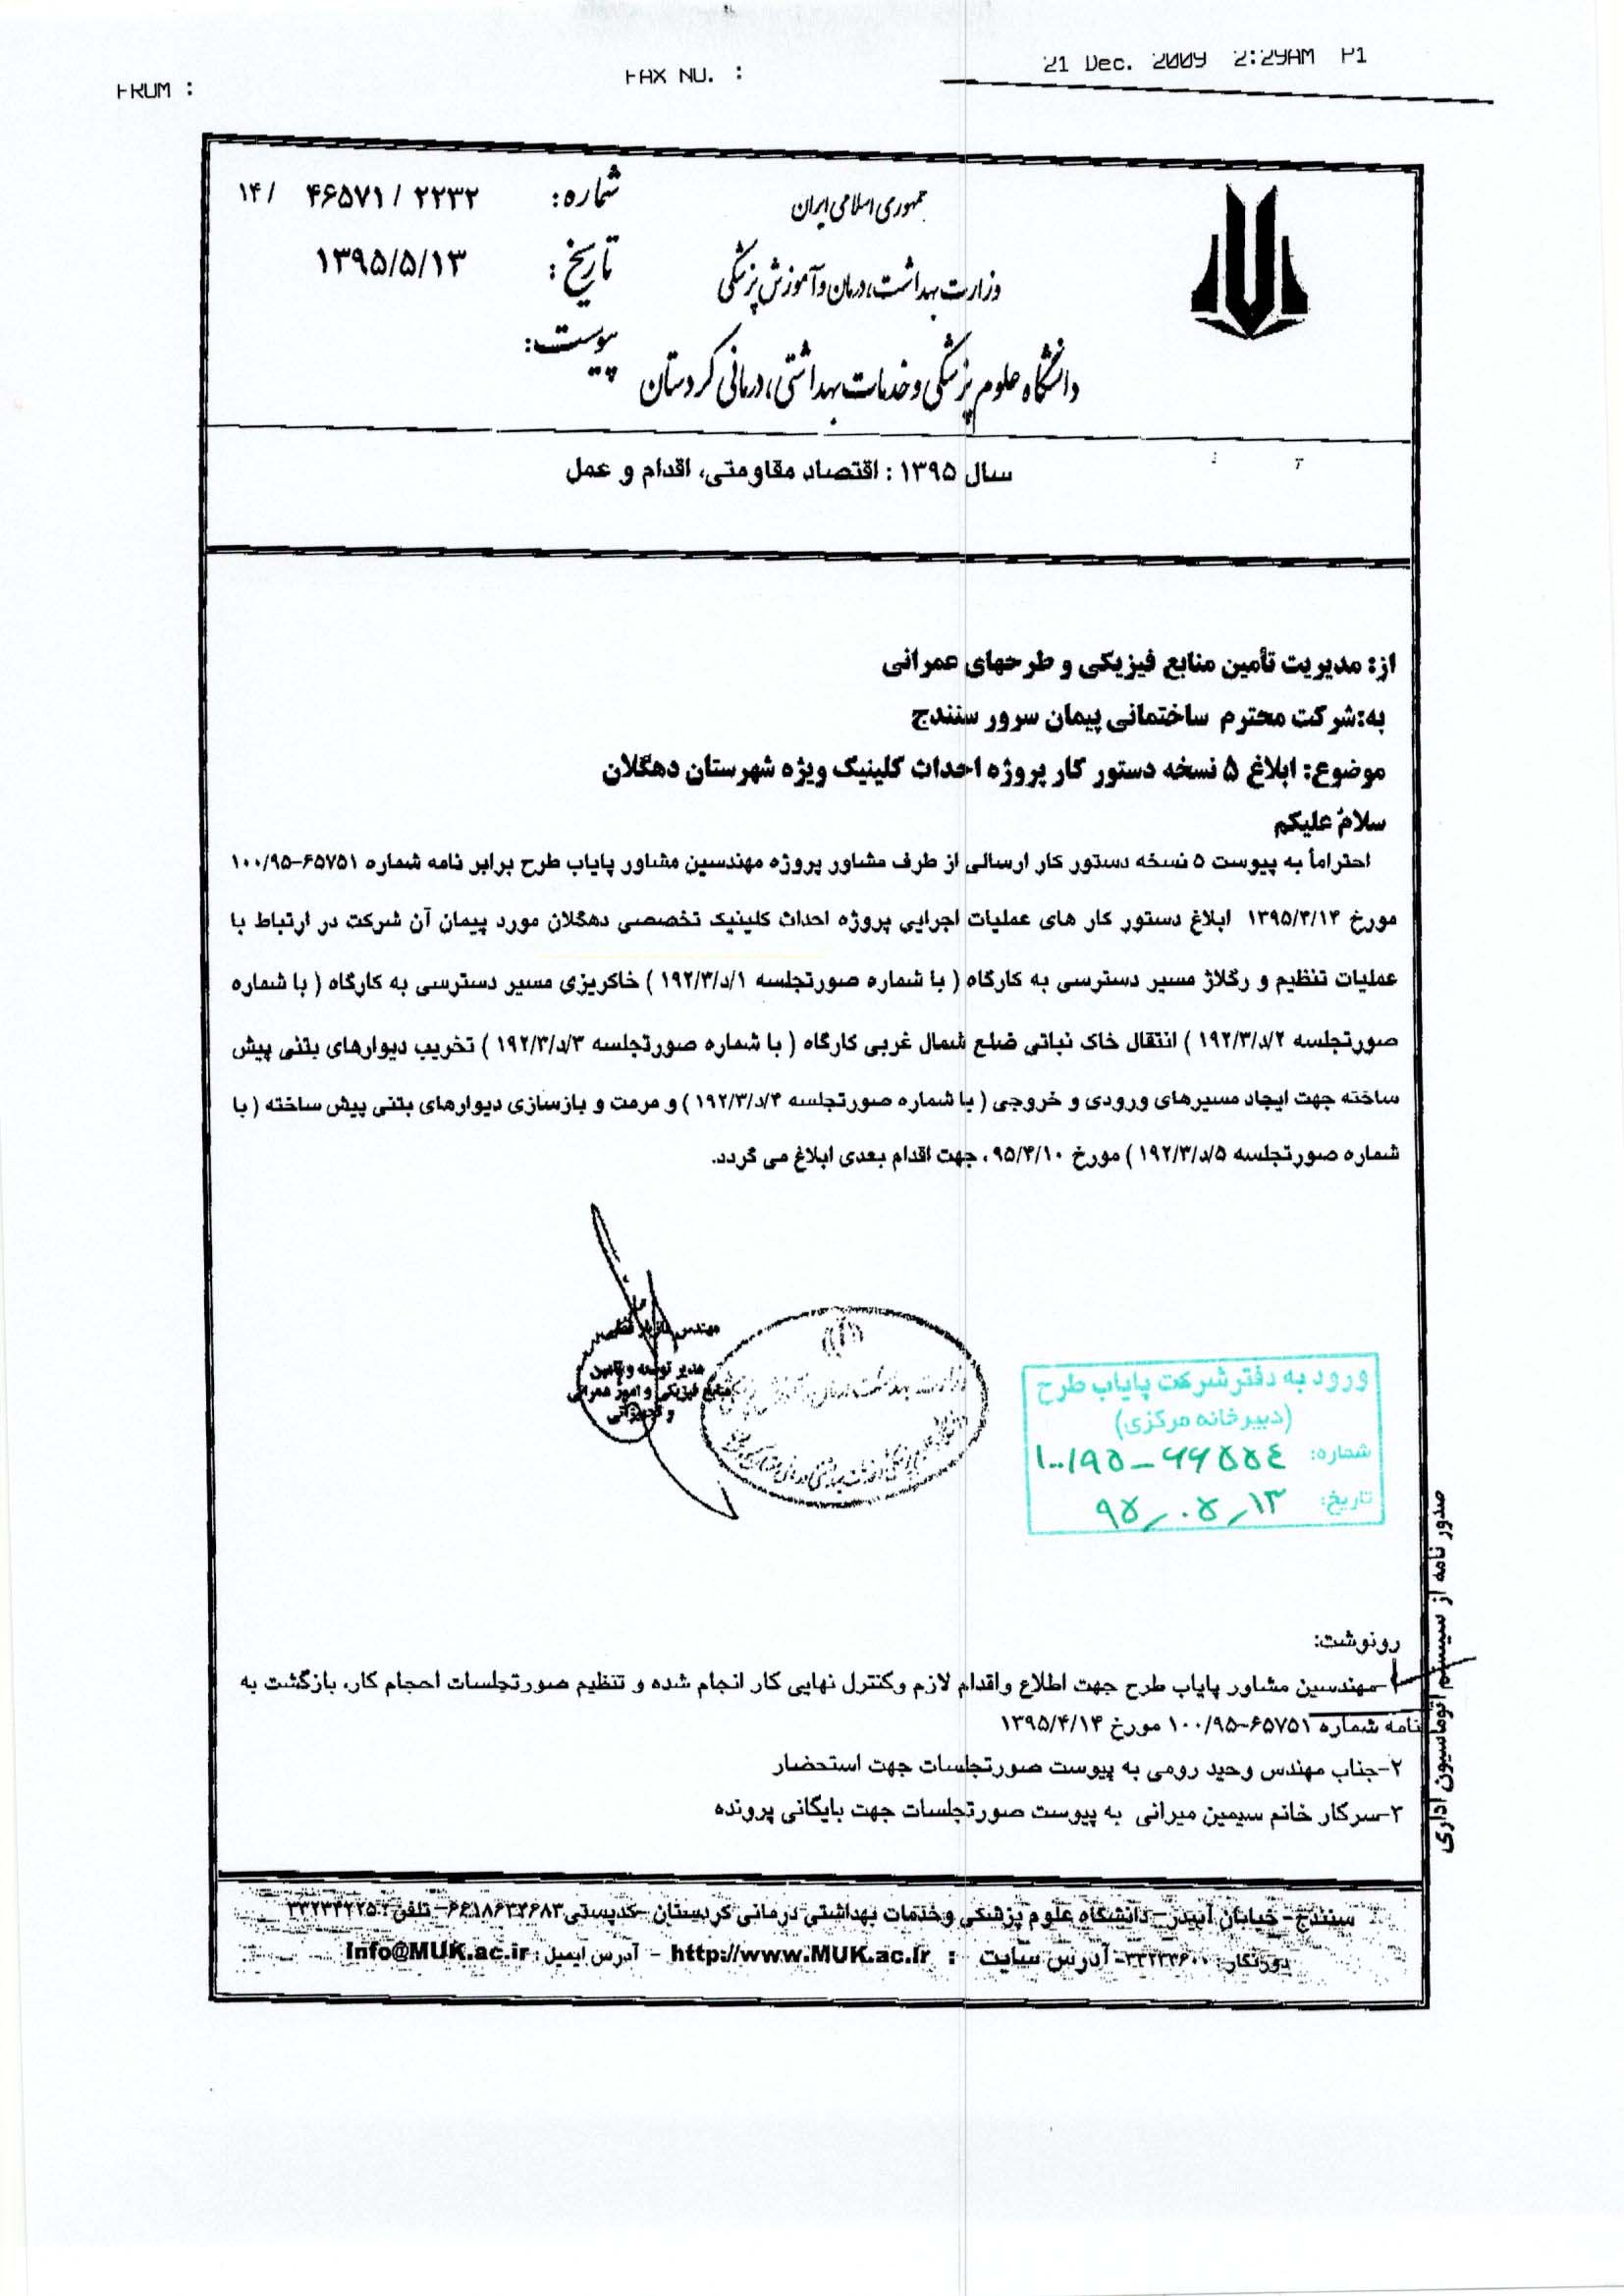 FROM :
FAX NO. :
21 Dec. 2009 2:29AM P1
جمهوری اسلامی ایران
وزارت بهداشت، درمان و آموزش پزشکی
دانشگاه علوم پزشکی و خدمات بهداشتی، درمانی کردستان
شماره: ۱۴/ ۴۶۵۷۱ / ۲۲۳۲
تاریخ: ۱۳۹۵/۵/۱۳
پیوست:
سال ۱۳۹۵ : اقتصاد مقاومتی، اقدام و عمل
از: مدیریت تأمین منابع فیزیکی و طرحهای عمرانی
به:شرکت محترم ساختمانی پیمان سرور سنندج
موضوع: ابلاغ ۵ نسخه دستور کار پروژه احداث کلینیک ویژه شهرستان دهگلان
سلام علیکم
احتراماً به پیوست ۵ نسخه دستور کار ارسالی از طرف مشاور پروژه مهندسین مشاور پایاب طرح برابر نامه شماره ۶۵۷۵۱-۱۰۰/۹۵
مورخ ۱۳۹۵/۴/۱۴ ابلاغ دستور کار های عملیات اجرایی پروژه احداث کلینیک تخصصی دهگلان مورد پیمان آن شرکت در ارتباط با
عملیات تنظیم و رگلاژ مسیر دسترسی به کارگاه ( با شماره صورتجلسه ۱/د/۱۹۲/۳ ) خاکریزی مسیر دسترسی به کارگاه ( با شماره
صورتجلسه ۲/د/۱۹۲/۳ ) انتقال خاک نباتی ضلع شمال غربی کارگاه ( با شماره صورتجلسه ۳/د/۱۹۲/۳ ) تخریب دیوارهای بتنی پیش
ساخته جهت ایجاد مسیرهای ورودی و خروجی ( با شماره صورتجلسه ۴/د/۱۹۲/۳ ) و مرمت و بازسازی دیوارهای بتنی پیش ساخته ( با
شماره صورتجلسه ۵/د/۱۹۲/۳ ) مورخ ۹۵/۴/۱۰ ، جهت اقدام بعدی ابلاغ می گردد.
مهندس
مدیر توسعه و تامین
منابع فیزیکی و امور عمرانی
ورود به دفتر شرکت پایاب طرح
(دبیرخانه مرکزی)
شماره: ۱۰۰/۹۵-۶۶۵۵۴
تاریخ: ۹۵/۰۵/۱۳
صدور نامه از سیستم اتوماسیون اداری
رونوشت:
۱-مهندسین مشاور پایاب طرح جهت اطلاع واقدام لازم وکنترل نهایی کار انجام شده و تنظیم صورتجلسات احجام کار، بازگشت به
نامه شماره ۶۵۷۵۱-۱۰۰/۹۵ مورخ ۱۳۹۵/۴/۱۴
۲-جناب مهندس وحید رومی به پیوست صورتجلسات جهت استحضار
۳-سرکار خانم سیمین میرانی به پیوست صورتجلسات جهت بایگانی پرونده
سنندج- خیابان آبیدر- دانشگاه علوم پزشکی و خدمات بهداشتی درمانی کردستان -کدپستی ۶۶۱۸۶۳۴۶۸۳- تلفن:
دورنگار: ۳۳۲۳۳۶۰۰- آدرس سایت : http://www.MUK.ac.ir - آدرس ایمیل: Info@MUK.ac.ir